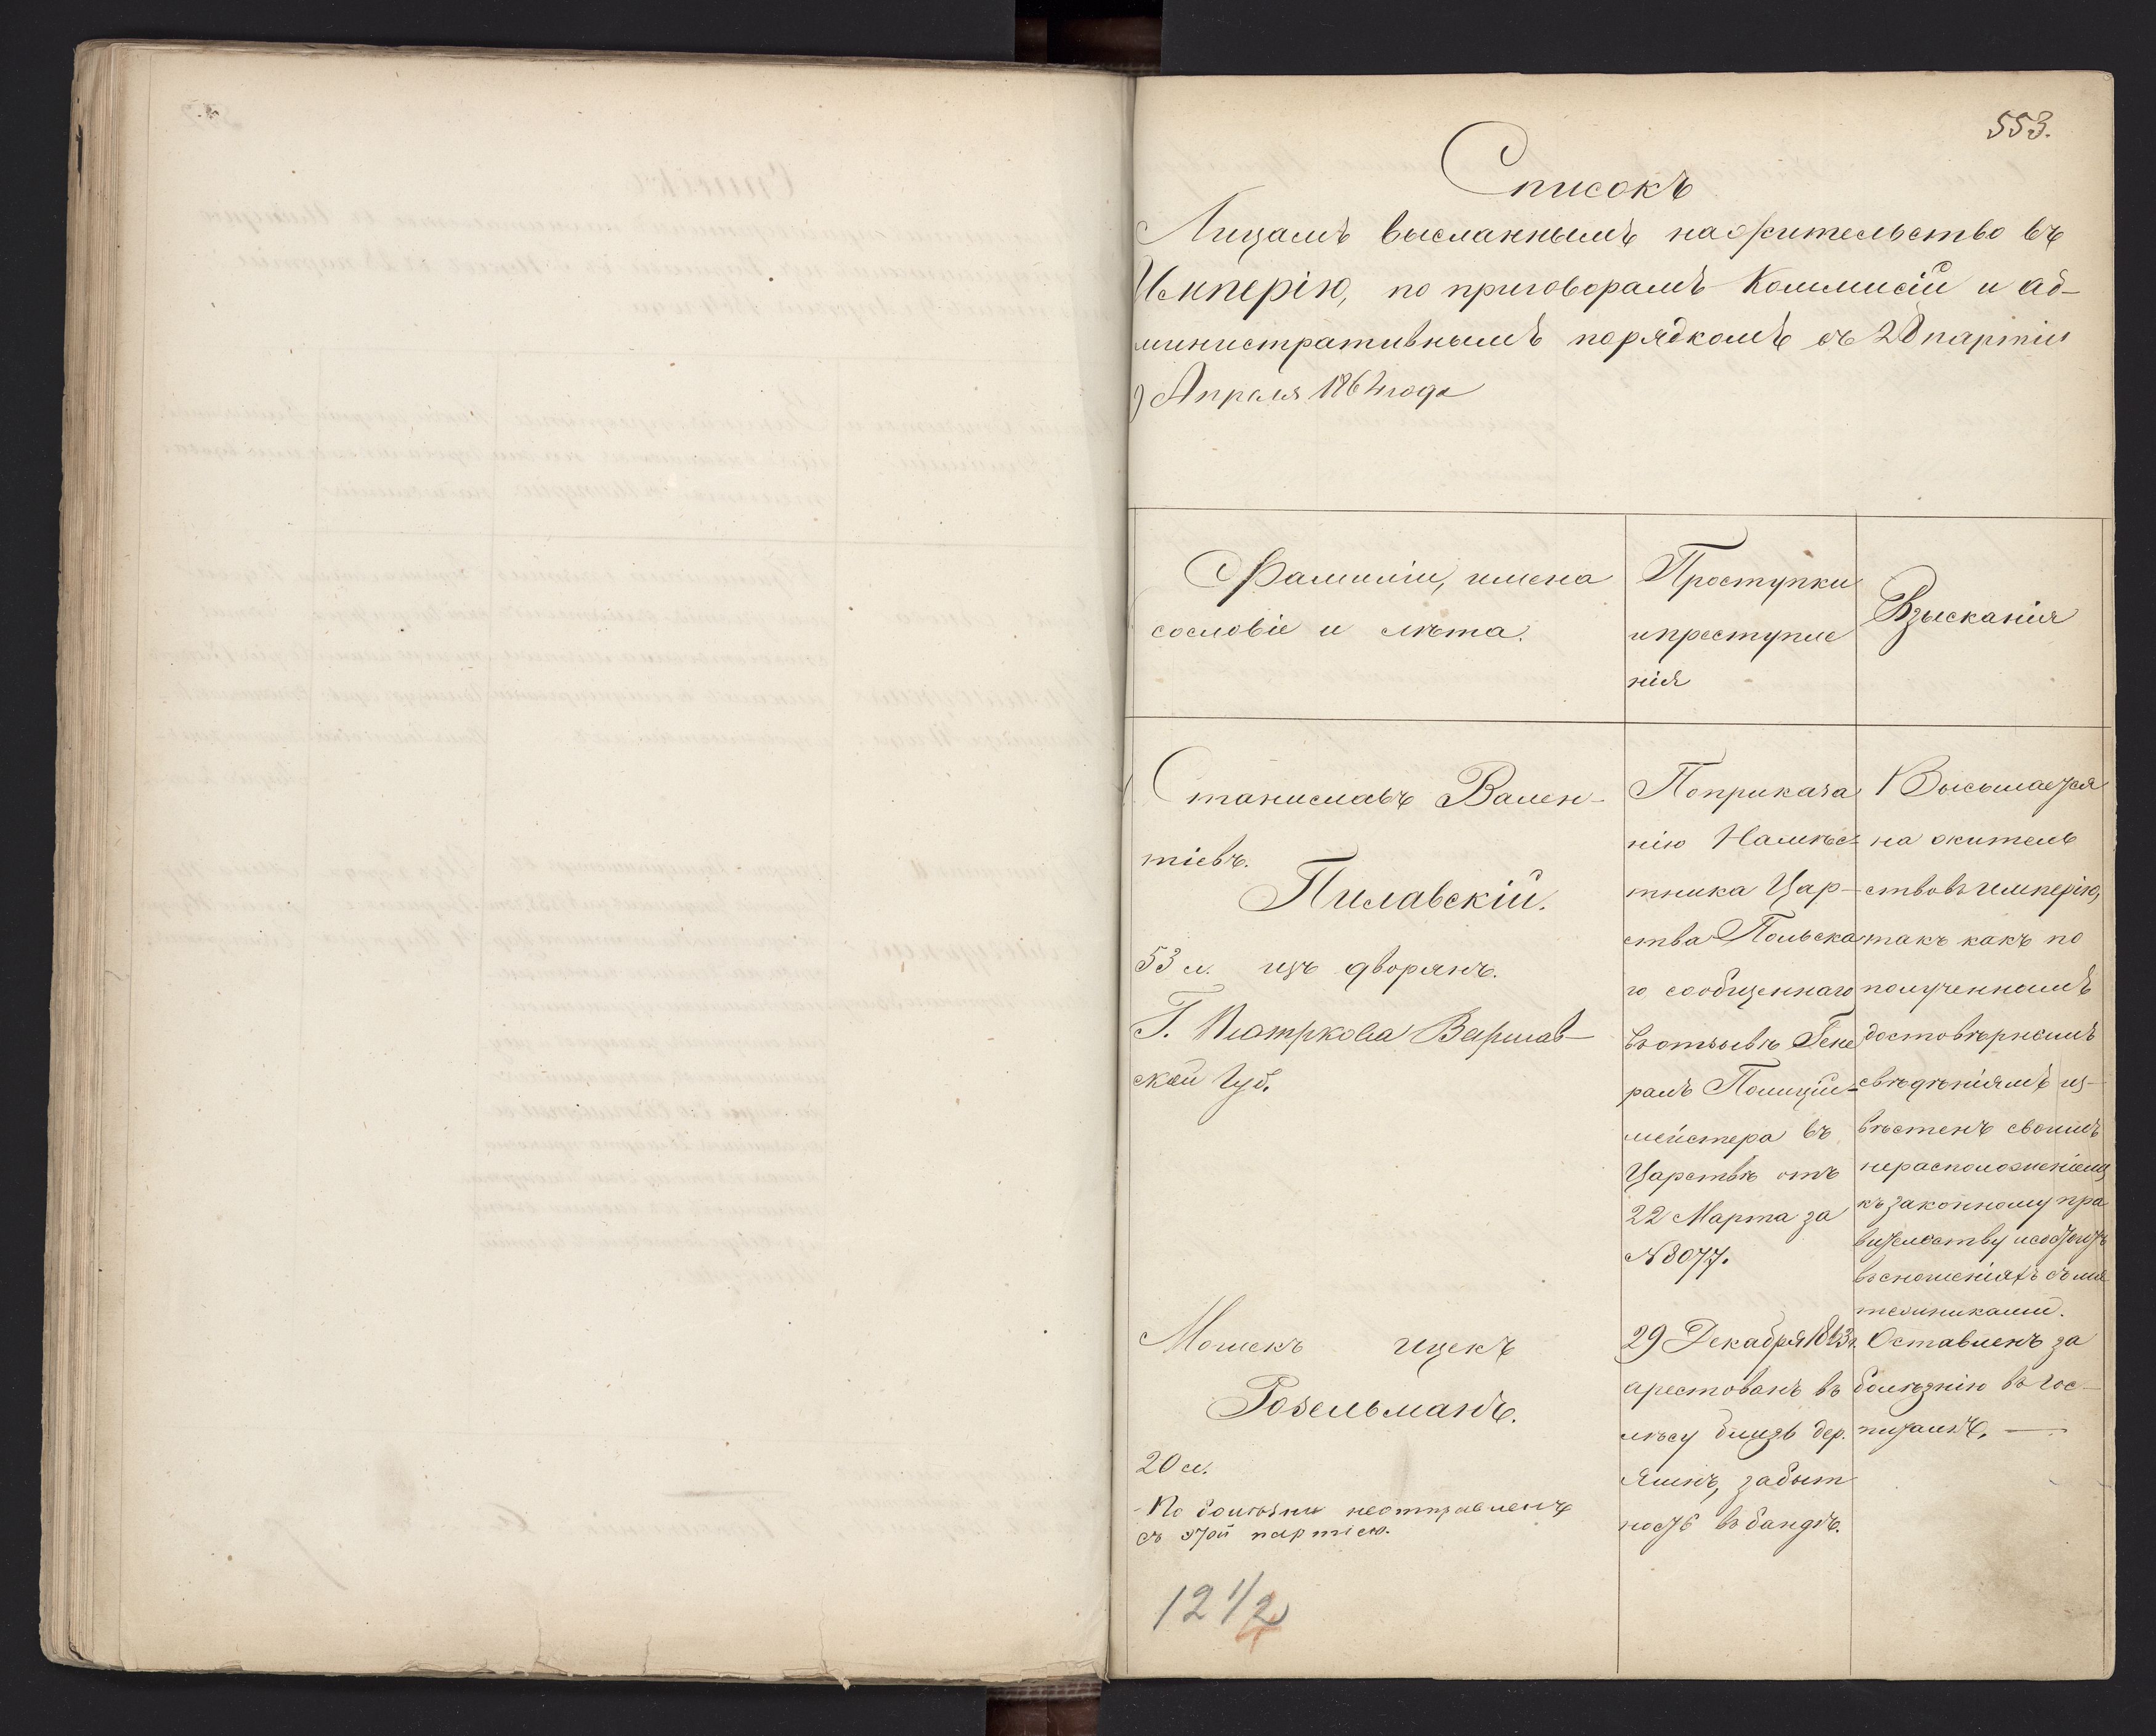 553.
Списокъ
Лицамъ высланнымъ на жительство въ
Имперію, по приговорамъ Коммисій и ад-
министративнымъ порядкомъ съ 28 партіи
Апрѣля 1864 года
Фамиліи, имена
сословіе и лѣта.
Проступки
и преступле
нія
Взысканія
Станиславъ Вален-
тіевъ.
Пилавскій.
53 л. изъ дворянъ.
Г. Піотркова Варшав-
ской Губ.
По приказа
нію Намѣс-
тника Цар-
ства Польска
го сообщеннаго
въ отзывѣ Гене
ралъ Полиціи-
мейстера въ
Царствѣ отъ
22 Марта за
№ 8077.
Высылается
на житель
ство въ имперію,
такъ какъ по
полученнымъ
достовѣрнымъ
свѣдѣніямъ из-
вѣстенъ своимъ
нерасположеніемъ
къ законному пра
вительству и состоитъ
въ сношеніяхъ съ мя
тежниками.
Мошекъ ицекъ
Розельманъ.
20 л.
По болѣзни не отправленъ
съ этой партіею.
29 Декабря 1863 г.
арестованъ въ
лѣсу близь дер.
Ямнъ, за быт
ность въ бандѣ.
Оставленъ за
болѣзнію въ гос-
питалѣ. —
12 1/2